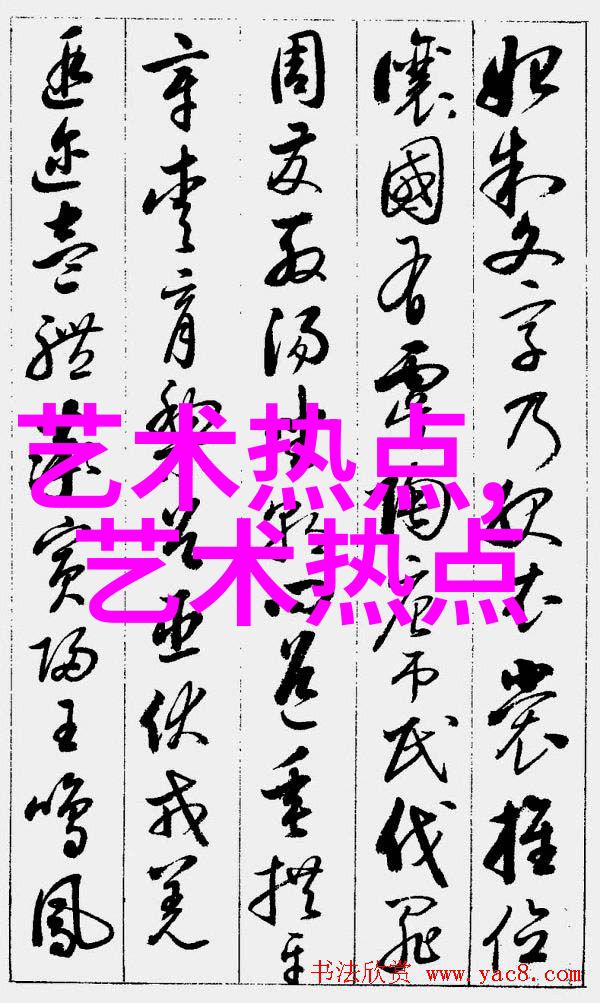 始制文字乃服衣裳推位
讓國有虞陶唐吊民伐罪
周發殷湯坐朝問道垂拱平
章愛育黎首臣伏戎羌
遐邇壹體率賓歸王鳴鳳
艺术热点,
艺术热点
书法欣赏 www.yac8.com